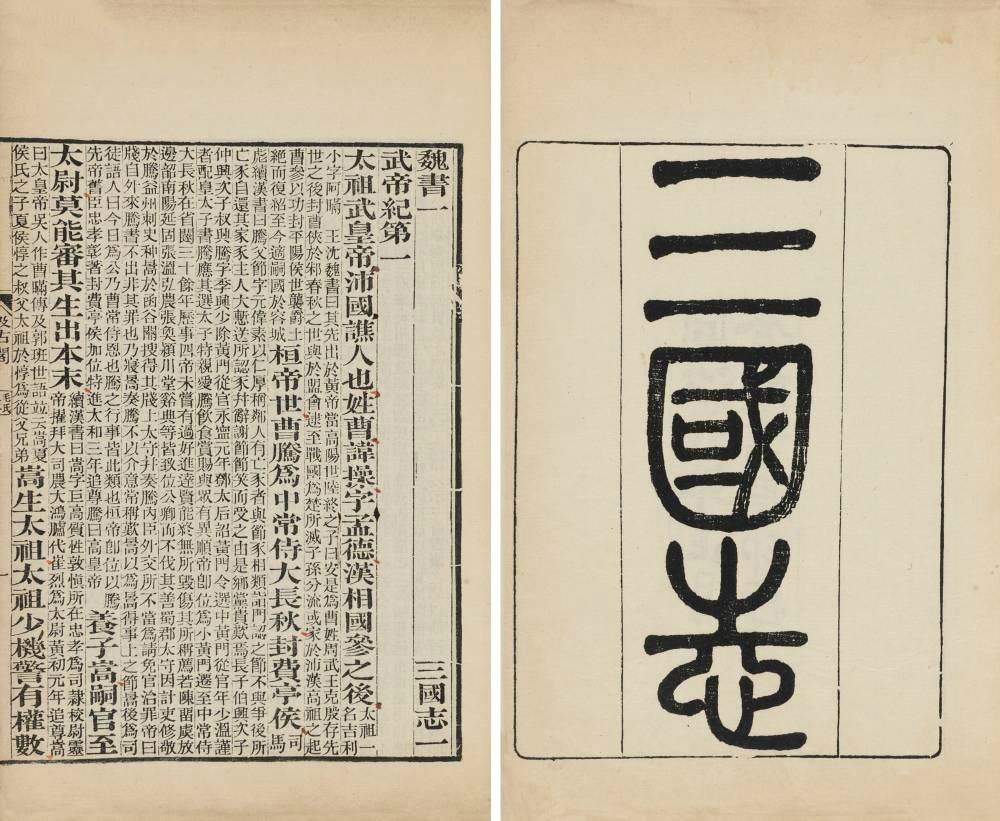 三國志
魏書一 三國志一
武帝紀第一
太祖武皇帝沛國譙人也姓曹諱操字孟德漢相國參之後太祖一名吉利
小字阿瞞 王沈魏書曰其先出於黃帝當高陽世陸終之子曰安是爲曹姓周武王克殷存先
世之後封曹俠於邾春秋之世與於盟會逮至戰國爲楚所滅子孫分流或家於沛漢高祖之起
曹參以功封平陽侯世襲爵土
絕而復紹至今適嗣國於容城
桓帝世曹騰爲中常侍大長秋封費亭侯司馬
彪續漢書曰騰父節字元偉素以仁厚稱鄰人有亡豕者與節豕相類詣門認之節不與爭後所
亡豕自還其家豕主人大慙送所認豕幷辭謝節節笑而受之由是鄉黨貴歎焉長子伯興次子
仲興次子叔興騰字季興少除黃門從官永寧元年鄧太后詔黃門令選中黃門從官年少溫謹
者配皇太子書騰應其選太子特親愛騰飲食賞賜與眾有異順帝卽位爲小黃門遷至中常侍
大長秋在省闥三十餘年歷事四帝未嘗有過好進達賢能終無所毀傷其所稱薦若陳留虞放
邊韶南陽延固張溫弘農張奐潁川堂谿典等皆致位公卿而不伐其善蜀郡太守因計吏修敬
於騰益州刺史种暠於函谷關搜得其牋上太守幷奏騰內臣外交所不當爲請免官治罪帝曰
牋自外來騰書不出非其罪也乃寢暠奏騰不以介意常稱歎暠以爲暠得事上之節暠後爲司
徒語人曰今日爲公乃曹常侍恩也騰之行事皆此類也桓帝卽位以騰
先帝舊臣忠孝彰著封費亭侯加位特進太和三年追尊騰曰高皇帝
養子嵩嗣官至
太尉莫能審其生出本末
續漢書曰嵩字巨高質性敦愼所在忠孝爲司隷校尉靈
帝擢拜大司農大鴻臚代崔烈爲太尉黃初元年追尊嵩
曰太皇帝吳人作曹瞞傳及郭班世語並云嵩夏
侯氏之子夏侯惇之叔父太祖於惇爲從父兄弟
嵩生太祖太祖少機警有權數